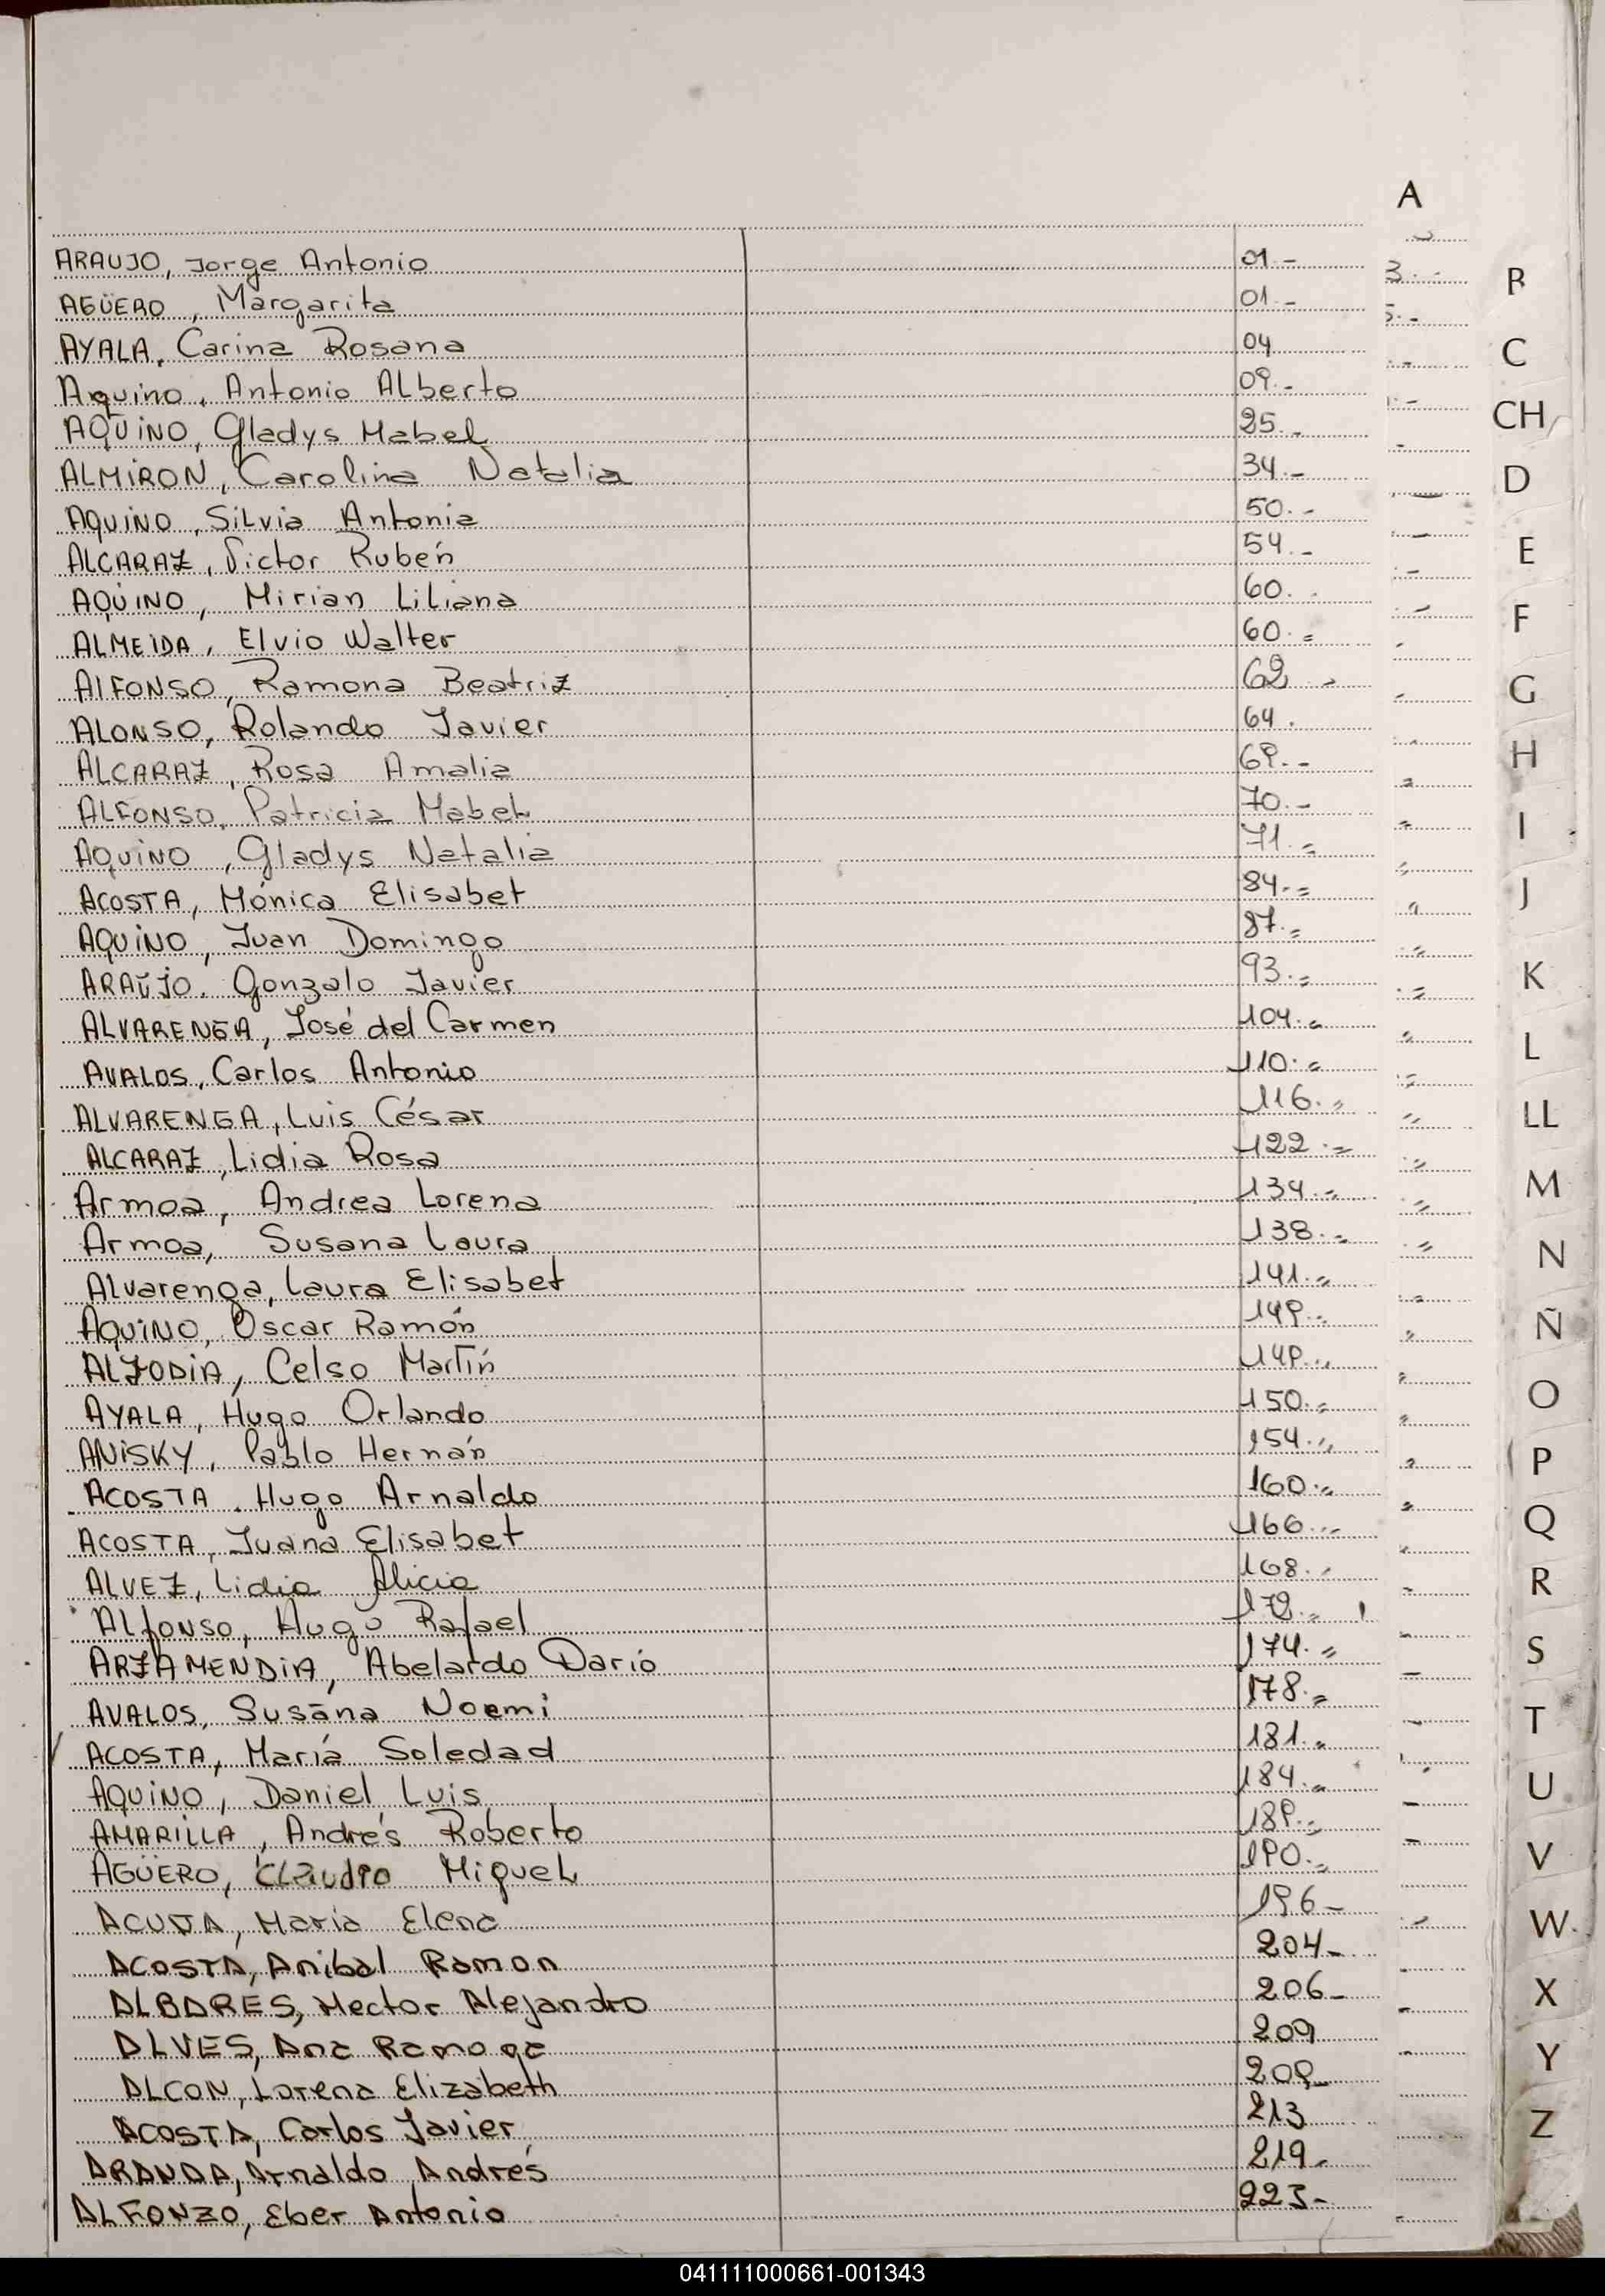 A
ARAUJO, Jorge Antonio 01.-
AGÜERO, Margarita 01.-
AYALA, Carina Rosana 04
Aquino, Antonio ALberto 09.-
AQUINO, Gladys Mabel 25.-
ALMIRON, Carolina Natalia 34.-
AQUINO, Silvia Antonia 50.-
ALCARAZ, Victor Rubén 54.-
AQUINO, Mirian Liliana 60.
ALMEIDA, Elvio Walter 60.=
ALFONSO, Ramona Beatriz 62.-
ALONSO, Rolando Javier 64.
ALCARAZ, Rosa Amalia 69.-
ALFONSO, Patricia Mabel 70.-
AQUINO, Gladys Natalia 71.=
ACOSTA, Mónica Elisabet 84.=
AQUINO, Juan Domingo 87.=
ARAUJO, Gonzalo Javier 93.=
ALVARENGA, José del Carmen 104.=
AVALOS, Carlos Antonio 110.=
ALVARENGA, Luis César 116.=
ALCARAZ, Lidia Rosa 122.=
Armoa, Andrea Lorena 134.=
Armoa, Susana Laura 138.=
Alvarenga, Laura Elisabet 141.=
AQUINO, Oscar Ramón 149.=
ALZODIA, Celso Martín 149.=
AYALA, Hugo Orlando 150.=
ANISKY, Pablo Hernán 154.=
ACOSTA, Hugo Arnaldo 160.=
ACOSTA, Juana Elisabet 166.=
ALVEZ, Lidia Alicia 168.=
ALfONSO, Hugo Rafael 172.=
ARZAMENDIA, Abelardo Dario 174.=
AVALOS, Susana Noemi 178.=
ACOSTA, María Soledad 181.=
AQUINO, Daniel Luis 184.=
AMARILLA, Andrés Roberto 189.=
AGÜERO, Claudio Miguel 190.=
ACUÑA, Maria Elena 196-
ACOSTA, Anibal Ramon 204-
ALBARES, Hector Alejandro 206-
ALVES, Ana Ramona 209
ALCON, Lorena Elizabeth 209-
ACOSTA, Carlos Javier 213
ARANDA, Arnaldo Andrés 219-
ALFONZO, Eber Antonio 223-
B
C
CH
D
E
F
G
H
I
J
K
L
LL
M
N
Ñ
O
P
Q
R
S
T
U
V
W
X
Y
Z
041111000661-001343